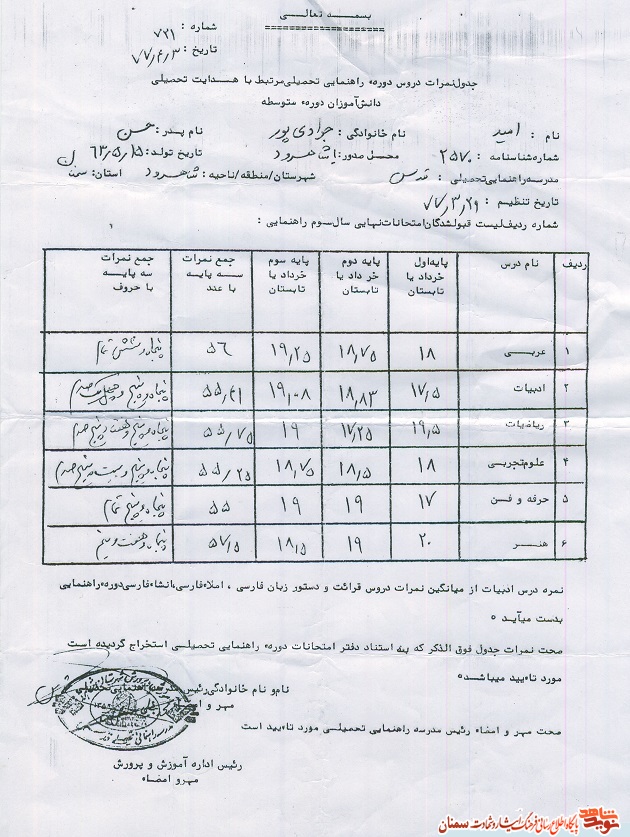 بسمه تعالی
شماره : ۷۲۱
تاریخ : ۷۷/۴/۳
جدول نمرات دروس دوره راهنمایی تحصیلی مرتبط با هدایت تحصیلی
دانش‌آموزان دوره متوسطه
نام : امید نام خانوادگی : جوادی پور نام پدر : حسن
شماره شناسنامه : ۲۵۷۰ محل صدور : شاهرود تاریخ تولد : ۶۳/۵/۱۵
مدرسه راهنمایی تحصیلی : قدس شهرستان/منطقه/ناحیه : شاهرود استان : سمنان
تاریخ تنظیم : ۷۷/۳/۲۹
شماره ردیف لیست قبولشدگان امتحانات نهایی سال سوم راهنمایی :
ردیف نام درس پایه اول خرداد یا تابستان پایه دوم خرداد یا تابستان پایه سوم خرداد یا تابستان جمع نمرات سه پایه با عدد جمع نمرات سه پایه با حروف
۱ عربی ۱۸ ۱۸/۷۵ ۱۹/۲۵ ۵۶ پنجاه و شش تمام
۲ ادبیات ۱۷/۵ ۱۸/۸۳ ۱۹/۰۸ ۵۵/۴۱ پنجاه و پنج و چهل و یک صدم
۳ ریاضیات ۱۹/۵ ۱۷/۲۵ ۱۹ ۵۵/۷۵ پنجاه و پنج و هفتاد و پنج صدم
۴ علوم تجربی ۱۸ ۱۸/۵ ۱۸/۷۵ ۵۵/۲۵ پنجاه و پنج و بیست و پنج صدم
۵ حرفه و فن ۱۷ ۱۹ ۱۹ ۵۵ پنجاه و پنج تمام
۶ هنر ۲۰ ۱۹ ۱۸/۵ ۵۷/۵ پنجاه و هفت و نیم
نمره درس ادبیات از میانگین نمرات دروس قرائت و دستور زبان فارسی ، املاء فارسی،انشاء فارسی دوره راهنمایی
بدست میآید ه
صحت نمرات جدول فوق الذکر که به استناد دفتر امتحانات دوره راهنمایی تحصیلی استخراج گردیده است
مورد تاءیید میباشد ه
نام و نام خانوادگی رئیس مدرسه راهنمایی تحصیلی
مهر و امضاء
صحت مهر و امضاء رئیس مدرسه راهنمایی تحصیلی مورد تاءیید است
رئیس اداره آموزش و پرورش
مهر و امضاء
نوید شاهد
پایگاه اطلاع رسانی فرهنگ ایثار و شهادت سمنان